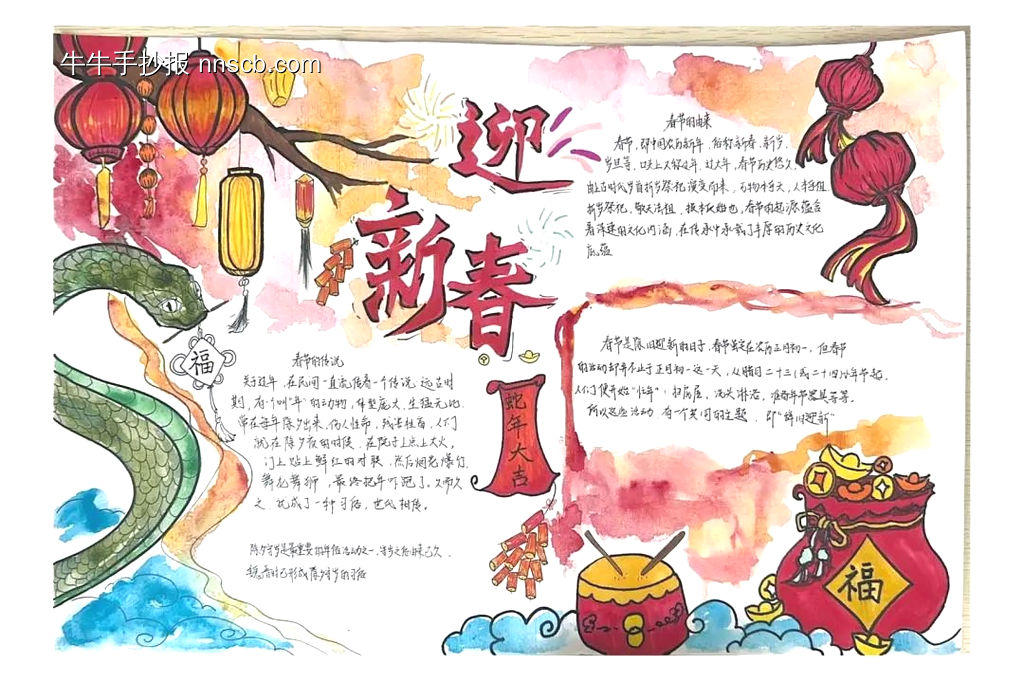 牛牛手抄报 nnscb.com
迎
新春
春节的由来
春节，即中国农历新年，俗称新春、新岁、
岁旦等，口头上又称过年、过大年，春节历史悠久，
由上古时代岁首祈岁祭祀演变而来，万物本乎天，人本乎祖
祈岁祭祀、敬天法祖，报本反始也，春节的起源蕴含
着深邃的文化内涵，在传承中承载了丰厚的历史文化
底蕴
福
春节的传说
关于过年，在民间一直流传着一个传说，远古时
期，有个叫"年"的动物，体型庞大，生猛无比，
常在每年除夕出来，伤人性命，残害牲畜，人们
就在除夕夜的时候，在院子上点上大火，
门上贴上鲜红的对联，然后燃竞爆竹，
舞龙舞狮，最终把年吓跑了。久而久
之，就成了一种习俗，世代相传。
除夕守岁是最重要的年俗活动之一，守岁之俗由来已久
蛇年大吉
春节是除旧迎新的日子，春节虽定在农历正月初一，但春节
的活动却并不止于正月初一这一天，从腊月二十三(或二十四)小年节起，
人们便开始"忙年"：扫房屋，洗头沐浴，准备年节器具等等。
所以这些活动，有个共同的主题，即"辞旧迎新"
福